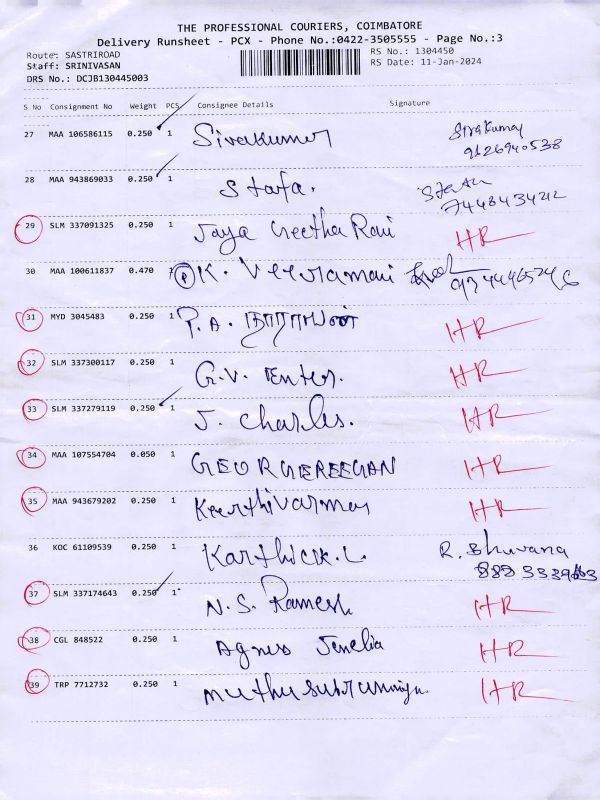 THE PROFESSIONAL COURIERS, COIMBATORE
Delivery Runsheet - PCX - Phone No.:0422-3505555 - Page No.:3
Route: SASTRIROAD RS No.: 1304450
Staff: SRINIVASAN RS Date: 11-Jan-2024
DRS No.: DCJB130445003
S No Consignment No Weight PCS Consignee Details Signature
27 MAA 106586115 0.250 1 Sivakumar Sivakumar
9126940538
28 MAA 943869033 0.250 1 Stafa.
7448434212
29 SLM 337091325 0.250 1 Jaya Geetha Rani HR
30 MAA 100611837 0.470 1 (P) K. Veeramani
9344465246
31 MYD 3045483 0.250 1 P.A. நாராயணன் HR
32 SLM 337300117 0.250 1 G.V. Enter. HR
33 SLM 337279119 0.250 1 J. Charles. HR
34 MAA 107554704 0.050 1 HR
35 MAA 943679202 0.250 1 Keerthivarman HR
36 KOC 61109539 0.250 1 Karthick.L. R. Bhuvana
37 SLM 337174643 0.250 1 N.S. Ramesh HR
38 CGL 848522 0.250 1 Agnes Jenelia HR
39 TRP 7712732 0.250 1 HR